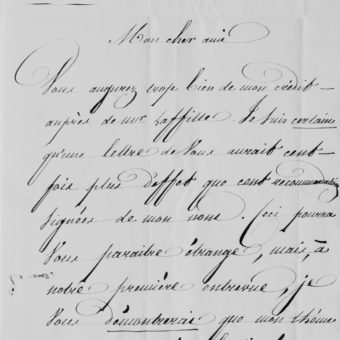 Mon cher ami
Vous augurez trop bien de mon crédit
auprès de mr Laffitte. Je suis certain
qu'une lettre de Vous aurait cent
fois plus d'effet que cent recommandations
signées de mon nom. Ceci pourra
Vous paraître étrange, mais, à
notre première entrevue, je
Vous démontrerai que mon thême